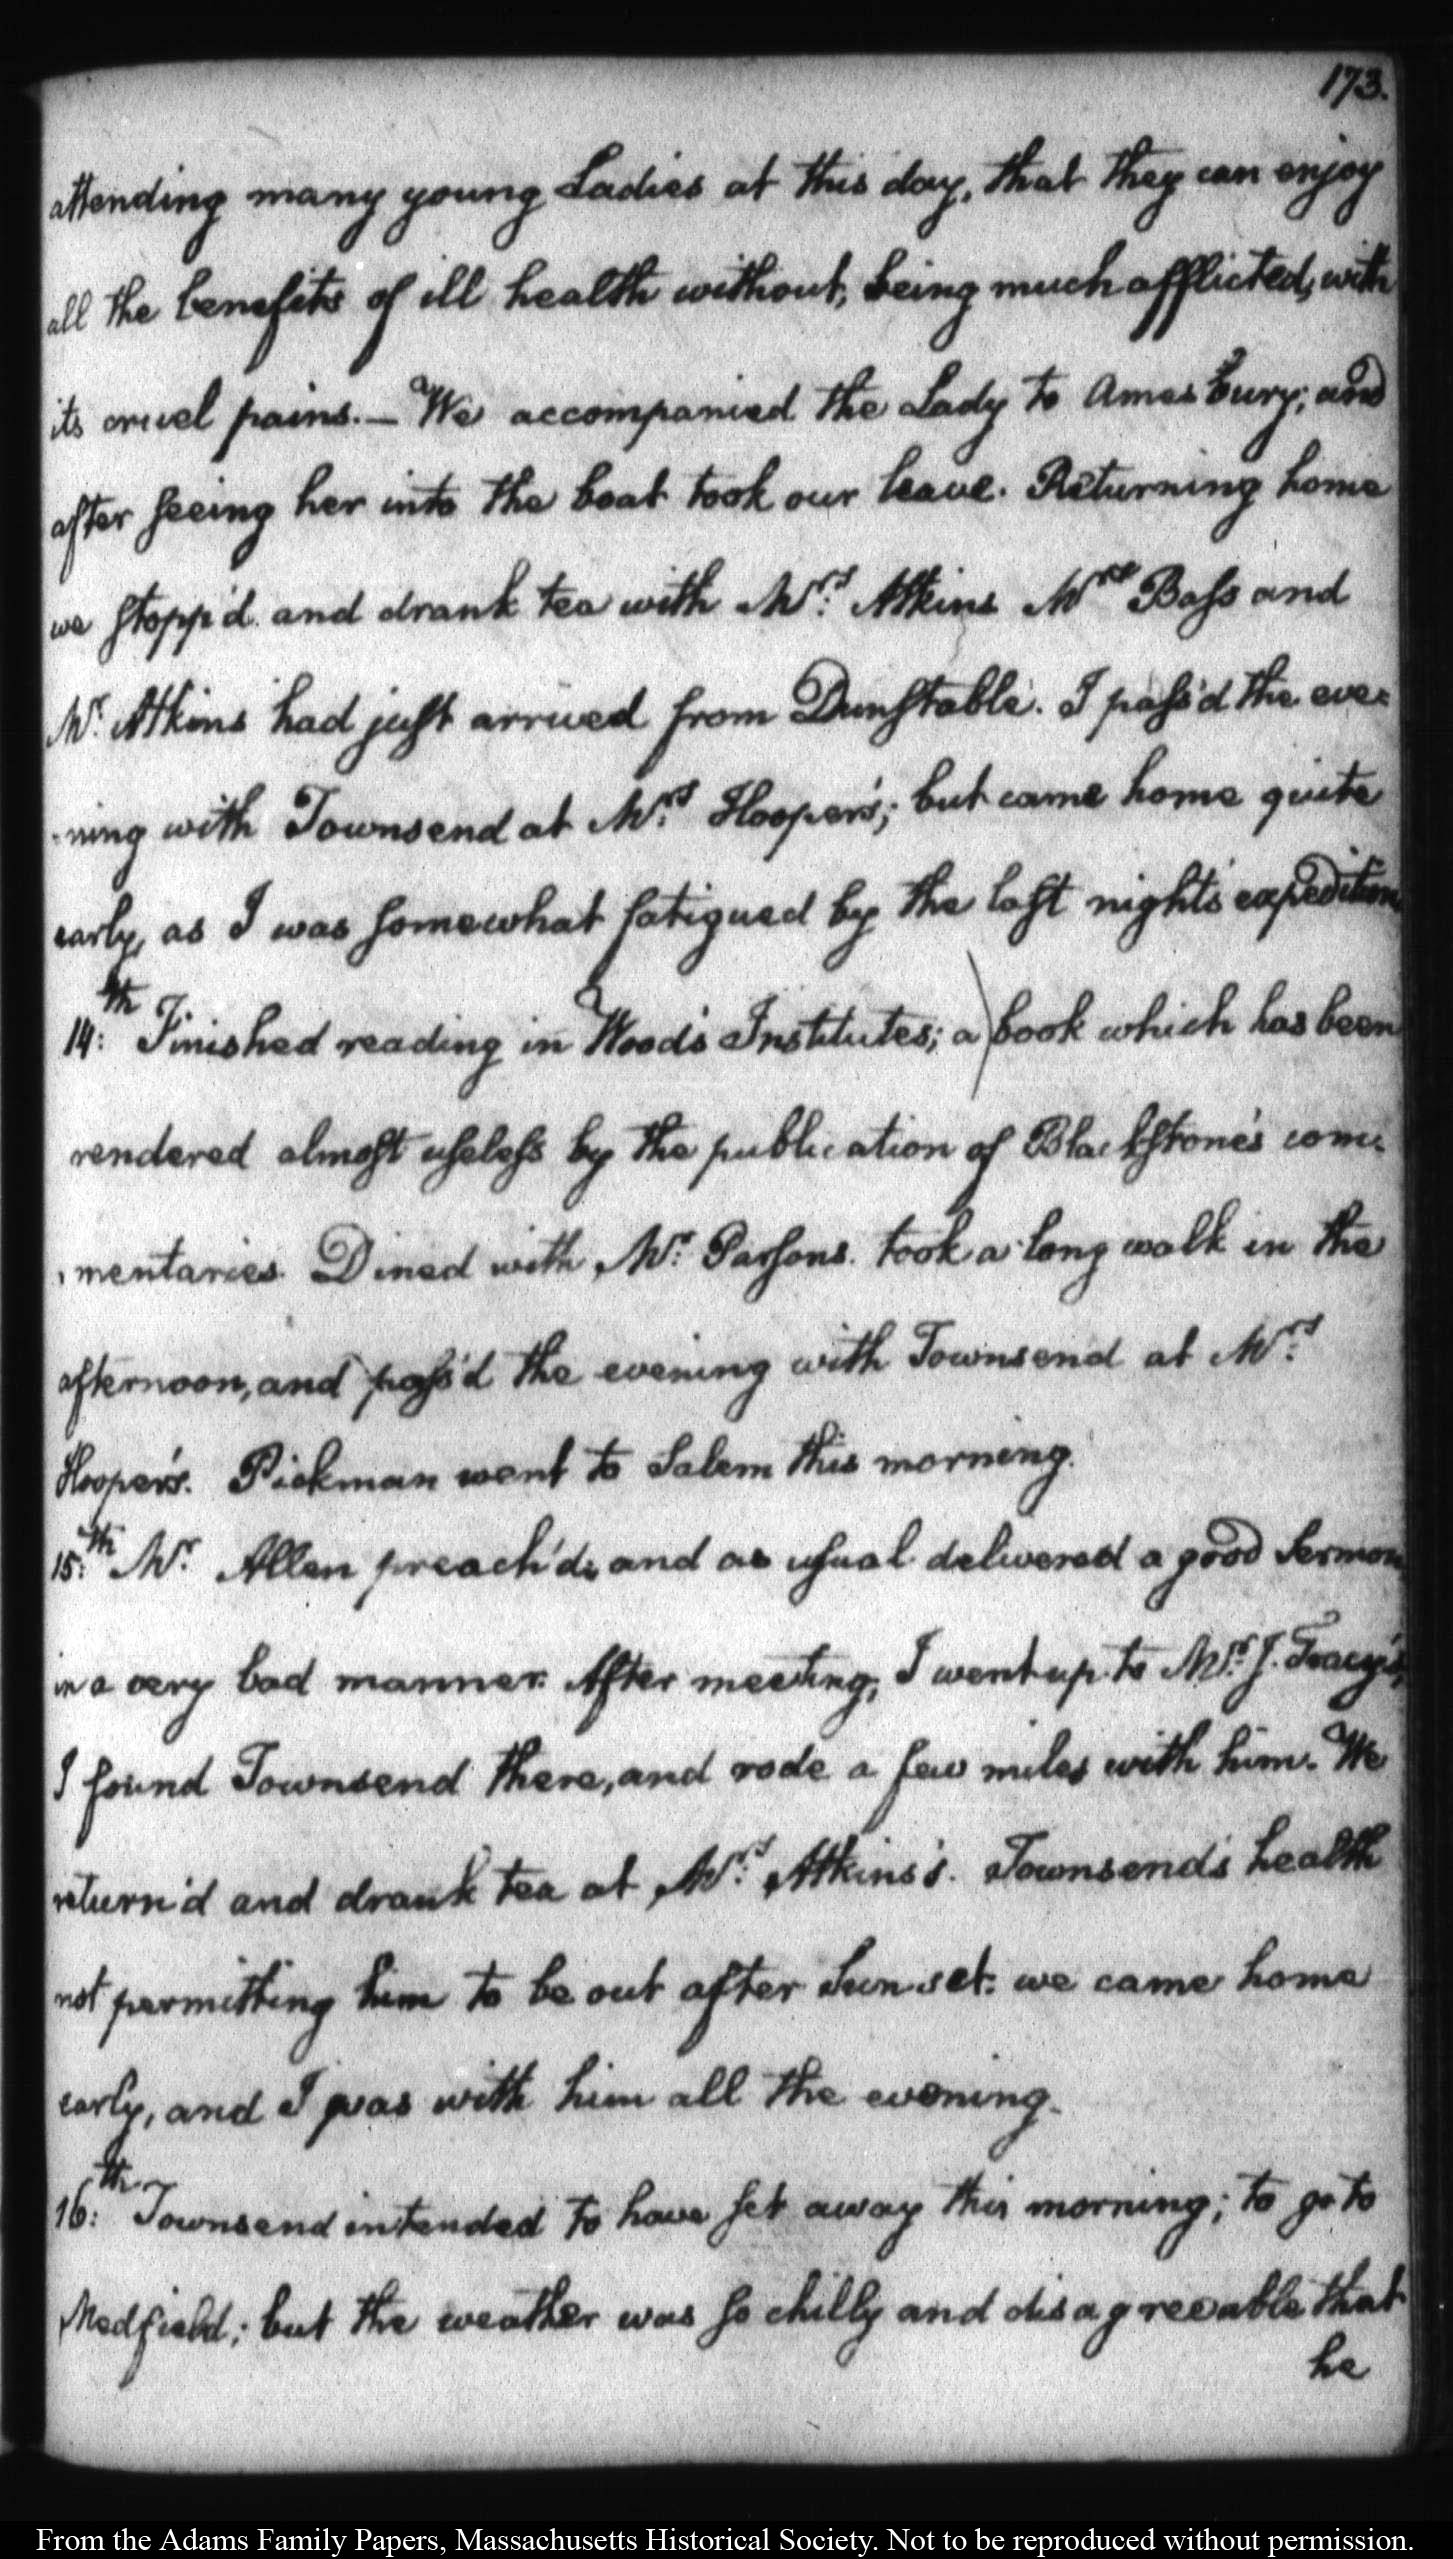 173.
attending many young Ladies at this day, that they can enjoy
all the benefits of ill health without, being much afflicted, with
its cruel pains.— We accompanied the Lady to Amesbury; and
after seeing her into the boat took our leave. Returning home
we stopp'd and drank tea with Mrs. Atkins Mrs Bass and
Mr. Atkins had just arrived from Dunstable. I pass'd the eve-
-ning with Townsend at Mrs. Hooper's; but came home quite
early, as I was somewhat fatigued by the last night's expedition
14:th Finished reading in Wood's Institutes; a book which has been
rendered almost useless by the publication of Blackstone's com-
-mentaries. Dined with Mr. Parsons. took a long walk in the
afternoon, and pass'd the evening with Townsend at Mrs.
Hooper's. Pickman went to Salem this morning.
15:th Mr. Allen preach'd; and as usual delivered a good Sermon
in a very bad manner. After meeting, I went up to Mrs. J. Tracy's,
I found Townsend there, and rode a few miles with him. We
return'd and drank tea at Mrs. Atkins's. Townsend's health
not permitting him to be out after Sun set. we came home
early, and I was with him all the evening.
16:th Townsend intended to have set away this morning; to go to
Medfield; but the weather was so chilly and disagreeable that
he
From the Adams Family Papers, Massachusetts Historical Society. Not to be reproduced without permission.